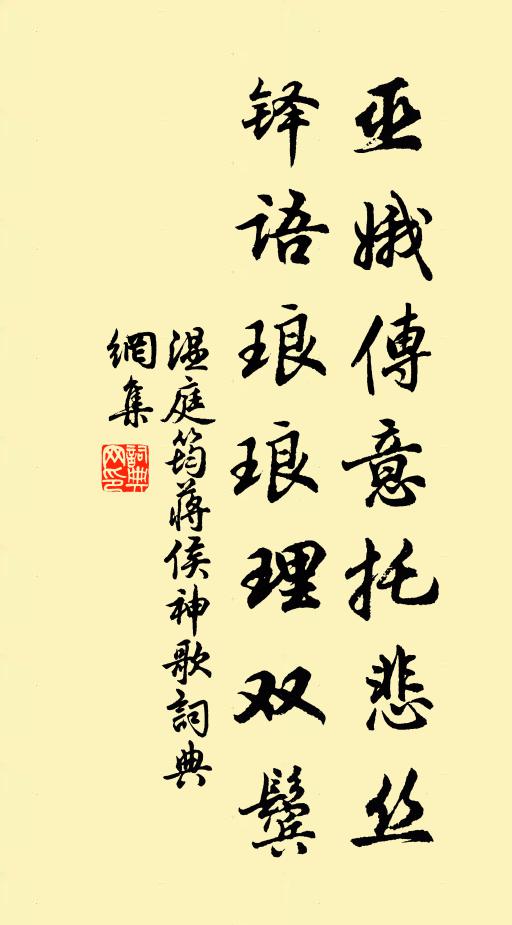 巫娥傳意托悲丝
铎语琅琅理双鬓
温庭筠蒋侯神歌詞典
網集
詞典
网印